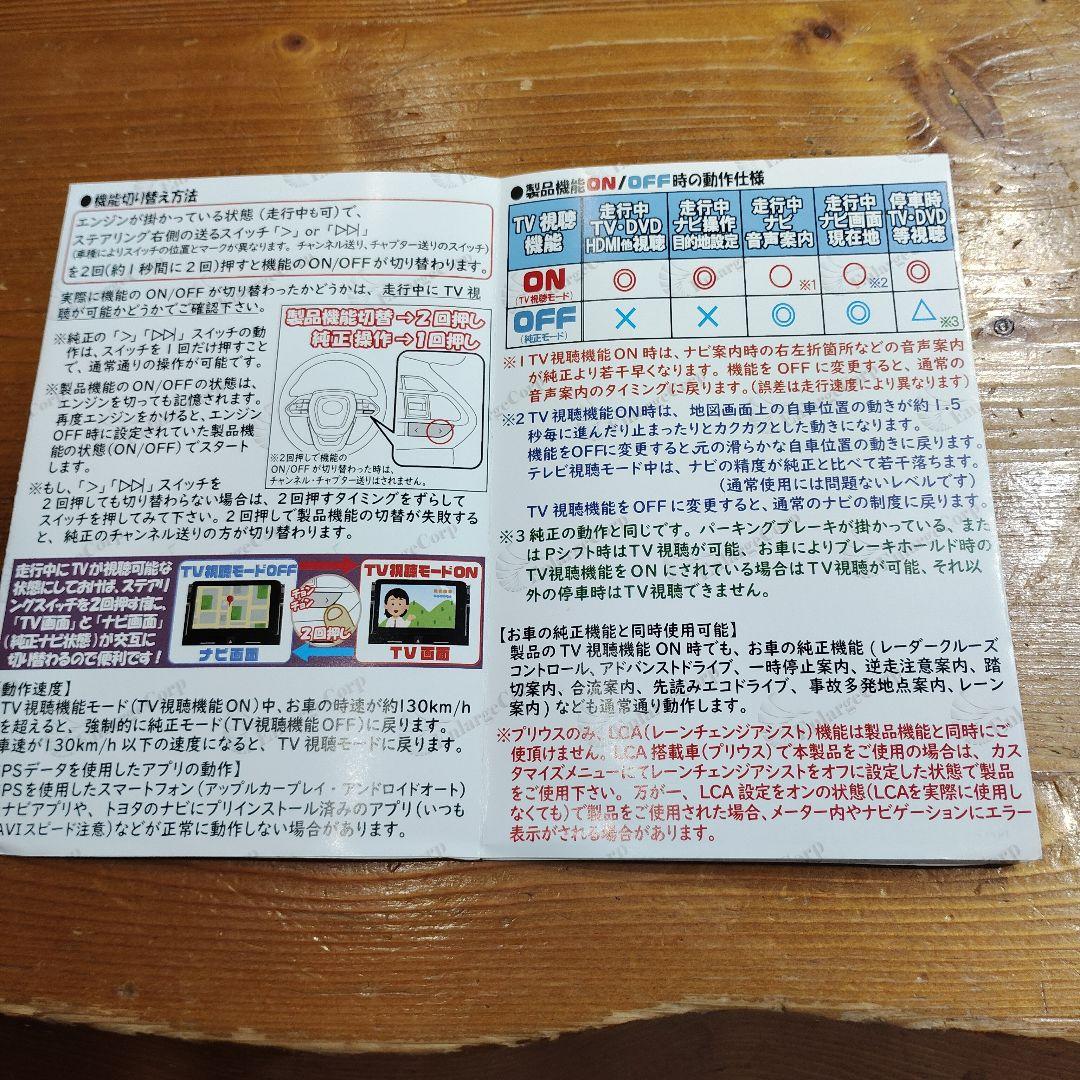 ●機能切り替え方法
エンジンが掛かっている状態(走行中も可)で、
ステアリング右側の送るスイッチ「>」or「▷▷|」
(車種によりスイッチの位置とマークが異なります。チャンネル送り、チャプター送りのスイッチ)
を2回(約1秒間に2回)押すと機能のON/OFFが切り替わります。
実際に機能のON/OFFが切り替わったかどうかは、走行中にTV視
聴が可能かどうかでご確認下さい。
※純正の「>」「▷▷|」スイッチの動
作は、スイッチを1回だけ押すこと
で、通常通りの操作が可能です。
※製品機能のON/OFFの状態は、
エンジンを切っても記憶されます。
再度エンジンをかけると、エンジン
OFF時に設定されていた製品機
能の状態(ON/OFF)でスタート
します。
製品機能切替→2回押し
純正操作→1回押し
※2回押して機能の
ON/OFFが切り替わった時は、
チャンネル・チャプター送りはされません。
※もし、「>」「▷▷|」スイッチを
2回押しても切り替わらない場合は、2回押すタイミングをずらして
スイッチを押してみて下さい。2回押しで製品機能の切替が失敗する
と、純正のチャンネル送りの方が切り替わります。
走行中にTVが視聴可能な
状態にしておけば、ステアリ
ングスイッチを2回押す度に、
「TV画面」と「ナビ画面」
(純正ナビ状態)が交互に
切り替わるので便利です!
TV視聴モードOFF
ナビ画面
チョン
チョン
2回押し
TV視聴モードON
TV画面
動作速度】
TV視聴機能モード(TV視聴機能ON)中、お車の時速が約130km/h
を超えると、強制的に純正モード(TV視聴機能OFF)に戻ります。
車速が130km/h以下の速度になると、TV視聴モードに戻ります。
PSデータを使用したアプリの動作】
PSを使用したスマートフォン(アップルカープレイ・アンドロイドオート)
ナビアプリや、トヨタのナビにプリインストール済みのアプリ(いつも
AVIスピード注意)などが正常に動作しない場合があります。
●製品機能ON/OFF時の動作仕様
TV視聴機能 走行中TV・DVD HDMI他視聴 走行中ナビ操作目的地設定 走行中ナビ音声案内 走行中ナビ画面現在地 停車時TV・DVD等視聴
ON (TV視聴モード) ◎ ◎ ○※1 ○※2 ◎
OFF (純正モード) × × ◎ ◎ △※3
※1TV視聴機能ON時は、ナビ案内時の右左折箇所などの音声案内
が純正より若干早くなります。機能をOFFに変更すると、通常の
音声案内のタイミングに戻ります。(誤差は走行速度により異なります)
※2TV視聴機能ON時は、地図画面上の自車位置の動きが約1.5
秒毎に進んだり止まったりとカクカクとした動きになります。
機能をOFFに変更すると元の滑らかな自車位置の動きに戻ります。
テレビ視聴モード中は、ナビの精度が純正と比べて若干落ちます。
(通常使用には問題ないレベルです)
TV視聴機能をOFFに変更すると、通常のナビの制度に戻ります。
※3純正の動作と同じです。パーキングブレーキが掛かっている、また
はPシフト時はTV視聴が可能、お車によりブレーキホールド時の
TV視聴機能をONにされている場合はTV視聴が可能、それ以
外の停車時はTV視聴できません。
【お車の純正機能と同時使用可能】
製品のTV視聴機能ON時でも、お車の純正機能(レーダークルーズ
コントロール、アドバンストドライブ、一時停止案内、逆走注意案内、踏
切案内、合流案内、先読みエコドライブ、事故多発地点案内、レーン
案内)なども通常通り動作します。
※プリウスのみ、LCA(レーンチェンジアシスト)機能は製品機能と同時にご
使頂けません。LCA搭載車(プリウス)で本製品をご使用の場合は、カス
タマイズメニューにてレーンチェンジアシストをオフに設定した状態で製品
をご使用下さい。万が一、LCA設定をオンの状態(LCAを実際に使用し
なくても)で製品をご使用された場合、メーター内やナビゲーションにエラー
表示がされる場合があります。
EnlargeCorp